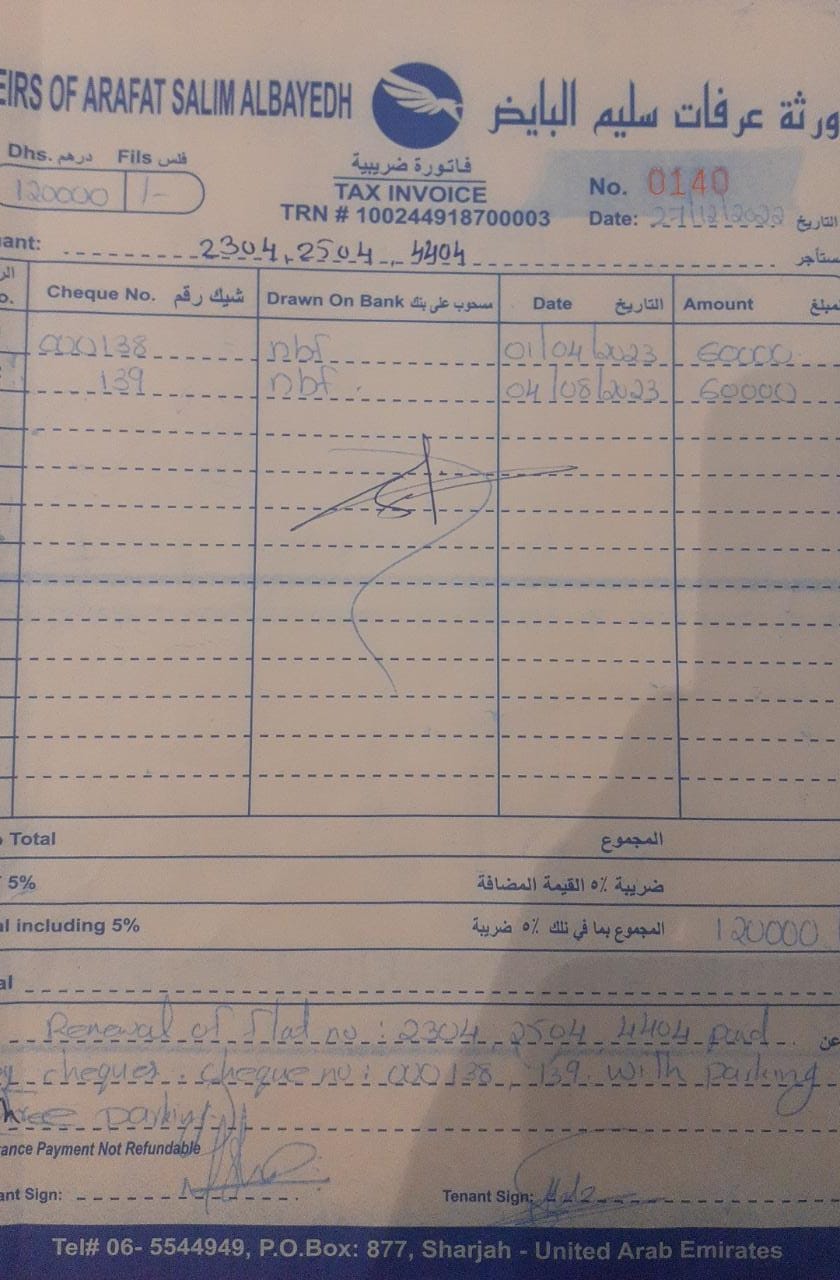 EIRS OF ARAFAT SALIM ALBAYEDH ورثة عرفات سليم البايض
Dhs. درهم Fils فلس
فاتورة ضريبية
120000 /-
TAX INVOICE
No. 0140
TRN # 100244918700003
Date: 27/12/2022 التاريخ
ant: 2304, 2504, 4404 ستأجر
o. Cheque No. شيك رقم Drawn On Bank مسحوب على بنك Date التاريخ Amount لمبلغ
000138 nbf 01/04/2023 60000
139 nbf 04/08/2023 60000
Total المجموع
5% ضريبة ٥٪ القيمة المضافة
al including 5% المجموع بما في ذلك ٥٪ ضريبة 120000
al
Renewal of flat no: 2304, 2504, 4404 paid عن
y cheques. cheque no: 000138, 139. with parking
three parking
ance Payment Not Refundable
ant Sign: Tenant Sign:
Tel# 06- 5544949, P.O.Box: 877, Sharjah - United Arab Emirates